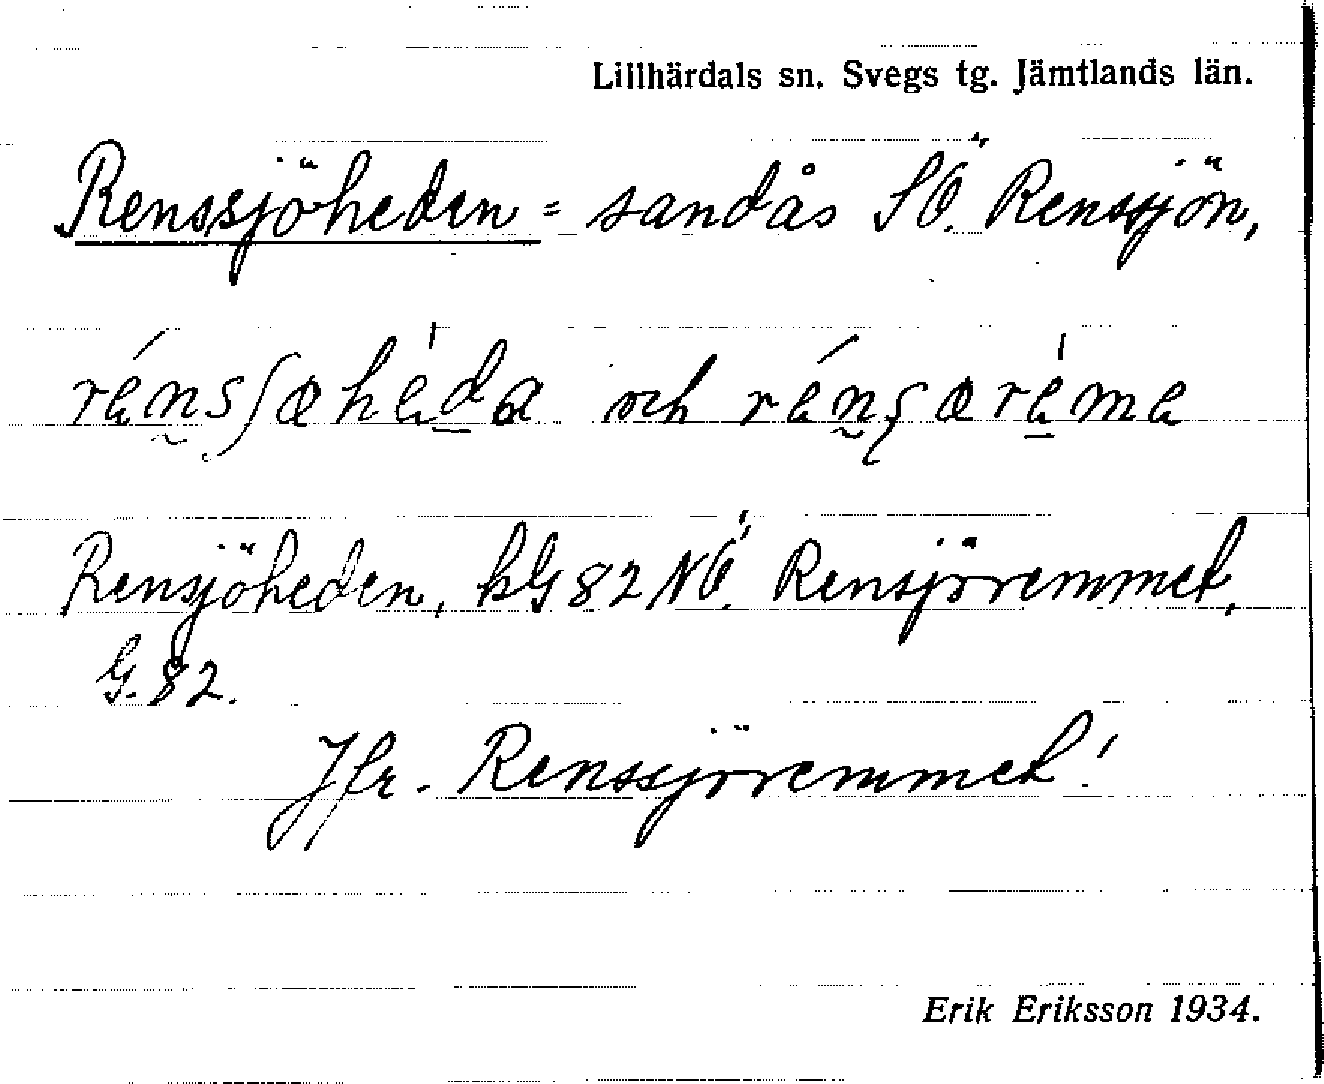 Lillhärdals sn. Svegs tg. Jämtlands län.
Renssjöheden = sandås SÖ. Renssjön,
rénsʃœhèda och rénʂœrème
Rensjöheden, kG 82 NÖ. Rensjöremmet,
G. 82.
Jfr. Renssjöremmet!
Erik Eriksson 1934.